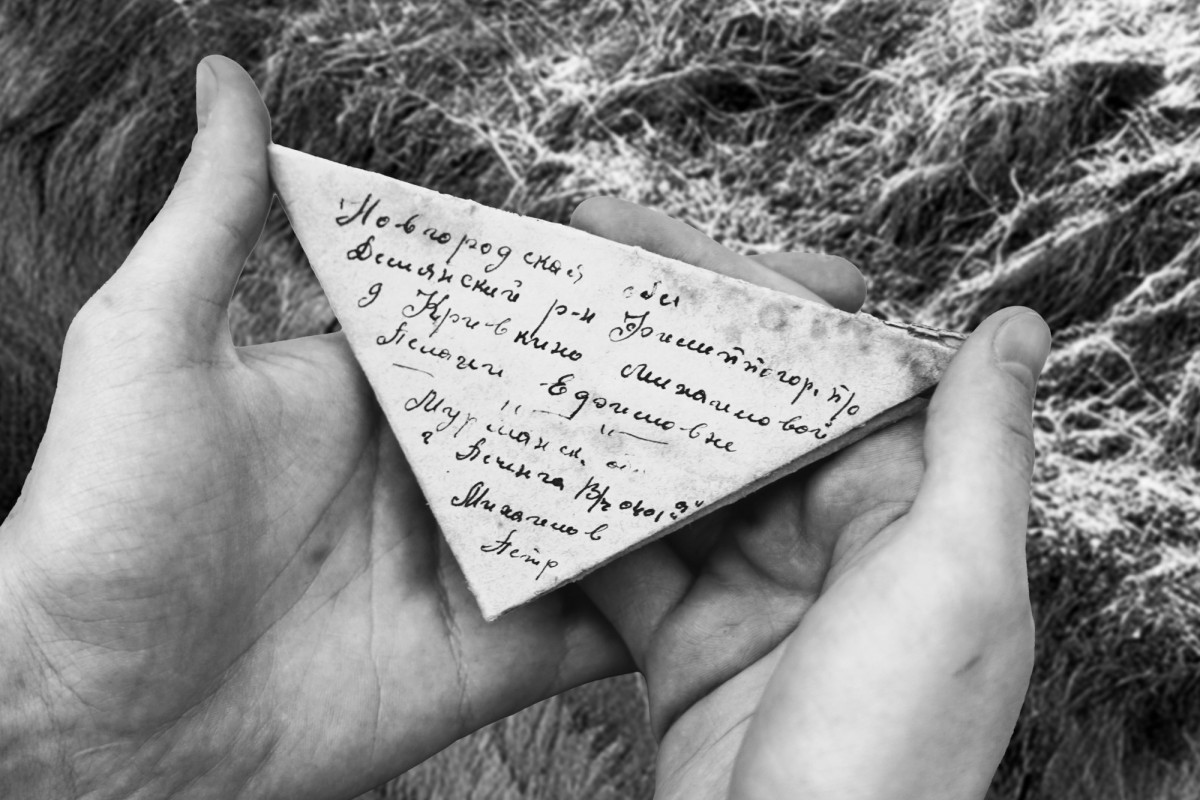 Новгородской обл
Демянский р-н Филиппогор. п/о
д Кривкино Михайловой
Пелагеи Ефимовне
Мурманск.
г Печенга В/ч "Я"
Михайлов
Петр